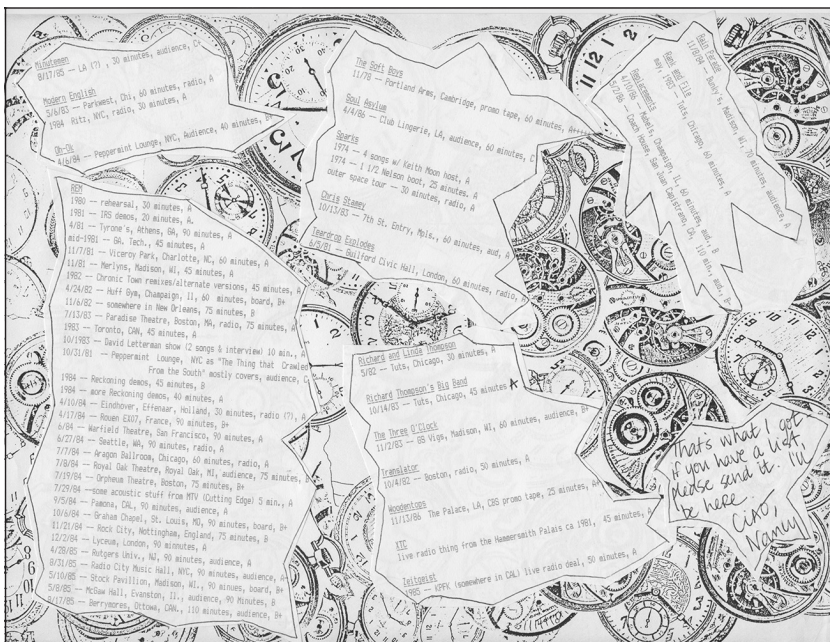 Minutemen
8/17/85 -- LA (?) , 30 minutes, audience, C+
Modern English
5/6/83 -- Parkwest, Chi, 60 minutes, radio, A
1984 Ritz, NYC, radio, 30 minutes, A
Oh-Ok
4/6/84 -- Peppermint Lounge, NYC, Audience, 40 minutes, B+
REM
1980 -- rehearsal, 30 minutes, A
1981 -- IRS demos, 20 minutes, A.
4/81 -- Tyrone's, Athens, GA, 90 minutes, A
mid-1981 -- GA. Tech., 45 minutes, A
11/7/81 -- Viceroy Park, Charlotte, NC, 60 minutes, A
11/81 -- Merlyns, Madison, WI, 45 minutes, A
1982 -- Chronic Town remixes/alternate versions, 45 minutes, A
4/24/82 -- Huff Gym, Champaign, Il, 60 minutes, board, B+
11/6/82 -- somewhere in New Orleans, 75 minutes, B
7/13/83 -- Paradise Theatre, Boston, MA, radio, 75 minutes, A
1983 -- Toronto, CAN, 45 minutes, A
10/1983 -- David Letterman show (2 songs & interview) 10 min., A
10/31/81 -- Peppermint Lounge, NYC as "The Thing that Crawled
From the South" mostly covers, audience, C
1984 -- Reckoning demos, 45 minutes, B
1984 -- more Reckoning demos, 40 minutes, A
4/10/84 -- Eindhover, Effenaar, Holland, 30 minutes, radio (?), A
4/17/84 -- Rouen EXO7, France, 90 minutes, B+
6/84 -- Warfield Theatre, San Francisco, 90 minutes, A
6/27/84 -- Seattle, WA, 90 minutes, radio, A
7/7/84 -- Aragon Ballroom, Chicago, 60 minutes, radio, A
7/8/84 -- Royal Oak Theatre, Royal Oak, MI, audience, 75 minutes, B
7/19/84 -- Orpheum Theatre, Boston, 75 minutes, B+
7/29/84 --some acoustic stuff from MTV (Cutting Edge) 5 min., A
9/5/84 -- Pamona, CAL, 90 minutes, audience, A
10/6/84 -- Graham Chapel, St. Louis, MO, 90 minutes, board, B+
11/21/84 -- Rock City, Nottingham, England, 75 minutes, B
12/2/84 -- Lyceum, London, 90 minutes, A
4/28/85 -- Rutgers Univ., NJ, 90 minutes, audience, A
8/31/85 -- Radio City Music Hall, NYC, 90 minutes, audience, A-
5/10/85 -- Stock Pavillion, Madison, WI., 90 minues, board, B+
5/8/85 -- McGaw Hall, Evanston, Il., audience, 90 Minutes, B
8/17/85 -- Barrymores, Ottowa, CAN., 110 minutes, audience, B+
The Soft Boys
11/78 -- Portland Arms, Cambridge, promo tape, 60 minutes, A++++
Soul Asylum
4/4/86 -- Club Lingerie, LA, audience, 60 minutes, C
Sparks
1974 -- 4 songs w/ Keith Moon host, A
1974 -- 1 1/2 Nelson boot, 25 minutes, A
outer space tour -- 30 minutes, radio, A
Chris Stamey
10/13/83 -- 7th St. Entry, Mpls., 60 minutes, aud, A
Teardrop Explodes
6/5/81 -- Guilford Civic Hall, London, 60 minutes, radio, A
Richard and Linda Thompson
5/82 -- Tuts, Chicago, 30 minutes, A
Richard Thompson's Big Band
10/14/83 -- Tuts, Chicago, 45 minutes A
The Three O'Clock
11/2/83 -- GB Vigs, Madison, WI, 60 minutes, audience, B+
Translator
10/4/82 -- Boston, radio, 50 minutes, A
Woodentops
11/13/86 The Palace, LA, CBS promo tape, 25 minutes, A+
XTC
live radio thing from the Hammersmith Palais ca 1981, 45 minutes, A
Zeitgeist
1985 -- KPFK (somewhere in CAL) live radio deal, 50 minutes, A
Rain Parade
11/8/84 -- Bunky's, Madison, WI, 70 minutes, audience, A
Rank and File
may, 1983 -- Tuts, Chicago, 60 minutes, A
Replacements
4/10/86 -- Mabels, Champaign, IL, 60 minutes, aud., B
Coach House, San Juan Capistrano, CA, 110 min., aud., B+
That's what I got
if you have a list
please send it. I'll
be here.
Ciao,
Nancy